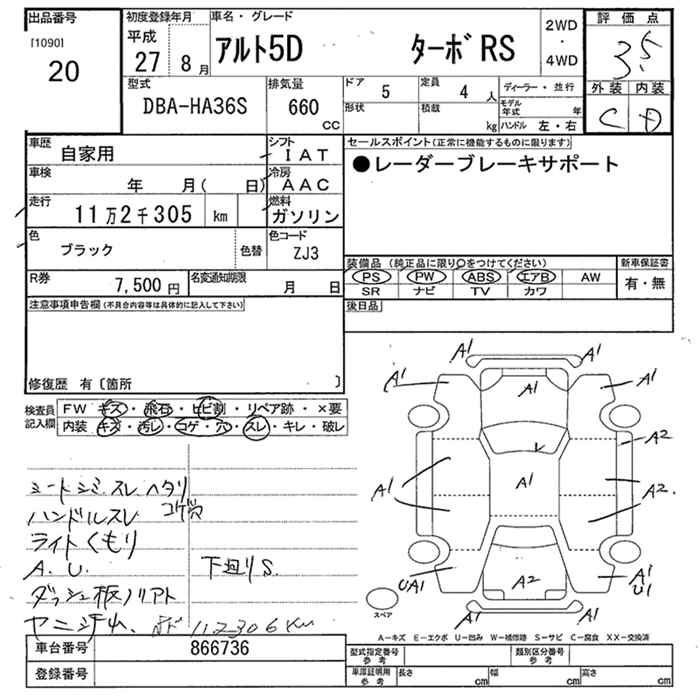 出品番号
[1090]
20
初度登録年月
平成
27年 8月
車名・グレード
アルト5D ターボRS
2WD
・
4WD
評価点
3.5
外装 内装
C D
型式
DBA-HA36S
排気量
660 cc
ドア 5
定員 4人
形状
積載 kg
ディーラー・並行
モデル年式 年
ハンドル 左・右
車歴 自家用
シフト IAT
車検 年 月( 日)
冷房 AAC
走行 11万2千305 km
燃料 ガソリン
色 ブラック
色替
色コード ZJ3
R券 7,500円
名変通知期限 月 日
セールスポイント(正常に機能するものに限ります)
●レーダーブレーキサポート
装備品(純正品に限り○をつけてください)
PS PW ABS エアB AW
SR ナビ TV カワ
新車保証書
有・無
後日品
注意事項申告欄(不具合内容等は具体的に記入して下さい)
修復歴 有〔箇所 〕
検査員記入欄
FW キズ・飛石・ヒビ割・リペア跡・×要
内装 キズ・汚レ・コゲ・穴・スレ・キレ・破レ
シートシミ.スレ ヘタリ
コゲ穴
ハンドルスレ
ライトくもり
A.U.
下廻りS.
112306Km
車台番号 866736
登録番号
A1 A1
A1 A1 A1
A2
A1 A1 A2
A2
UA1 A1
U1
スペア
A―キズ E―エクボ U―凹み W―補修跡 S―サビ C―腐食 XX―交換済
型式指定番号 参考
類別区分番号 参考
車庫証明用 参考
長さ cm 幅 cm 高さ cm